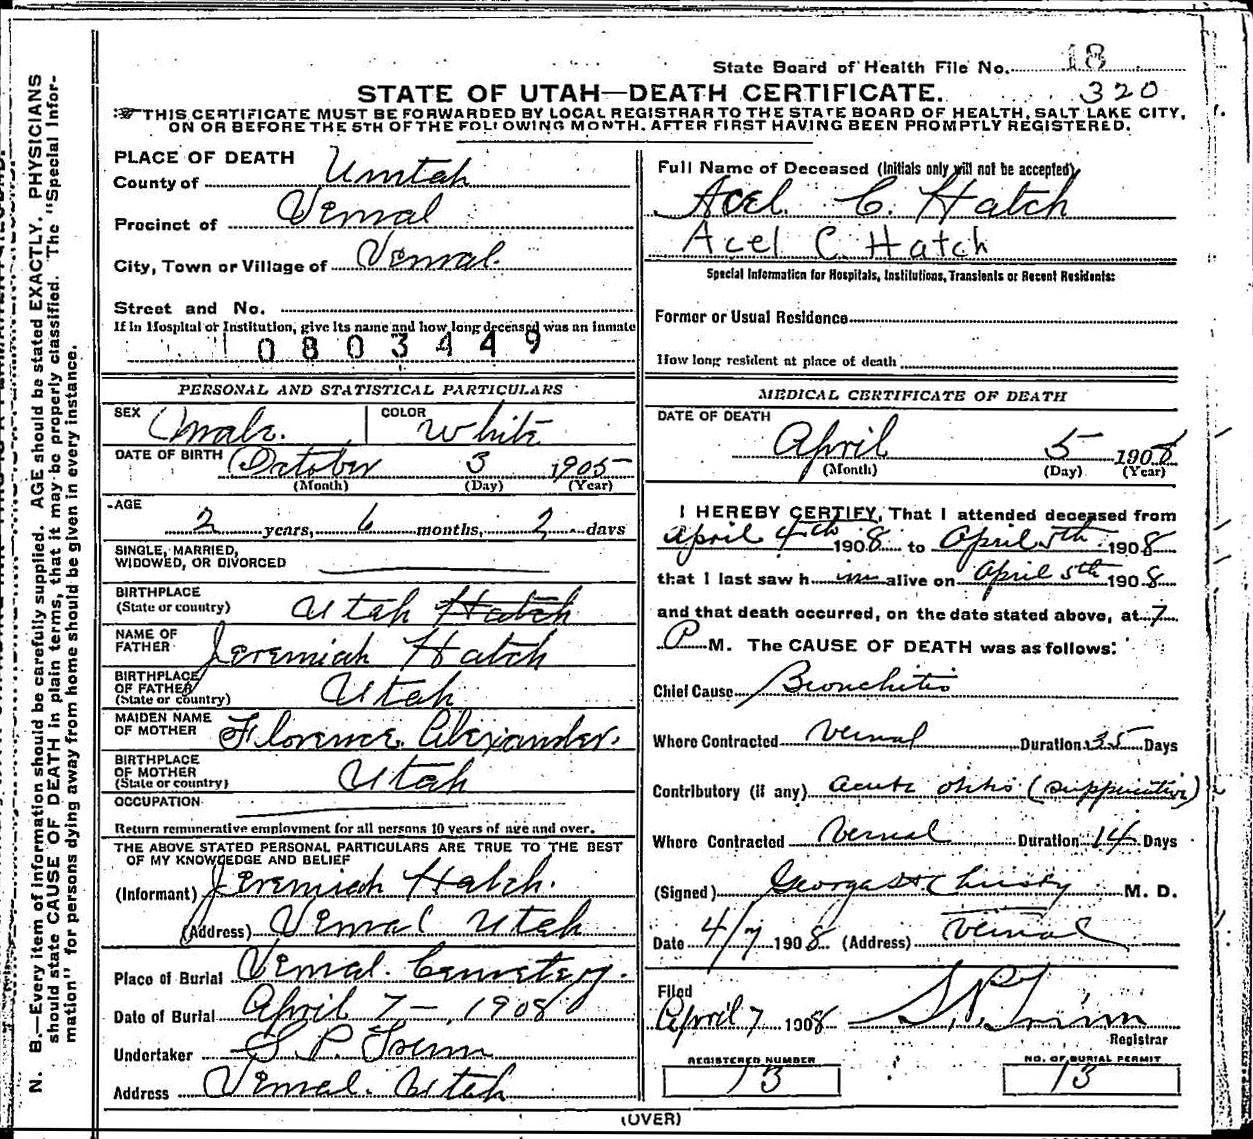 State Board of Health File No. 18
320
STATE OF UTAH—DEATH CERTIFICATE.
THIS CERTIFICATE MUST BE FORWARDED BY LOCAL REGISTRAR TO THE STATE BOARD OF HEALTH, SALT LAKE CITY,
ON OR BEFORE THE 5TH OF THE FOLLOWING MONTH. AFTER FIRST HAVING BEEN PROMPTLY REGISTERED.
N. B.—Every item of information should be carefully supplied. AGE should be stated EXACTLY. PHYSICIANS
should state CAUSE OF DEATH in plain terms, that it may be properly classified. The "Special Infor-
mation" for persons dying away from home should be given in every instance.
PLACE OF DEATH
County of Uintah
Precinct of Vernal
City, Town or Village of Vernal.
Street and No.
If in Hospital or Institution, give its name and how long deceased was an inmate
0803449
PERSONAL AND STATISTICAL PARTICULARS
SEX Male. COLOR White
DATE OF BIRTH October 3 1905
(Month) (Day) (Year)
AGE
2 years, 6 months, 2 days
SINGLE, MARRIED,
WIDOWED, OR DIVORCED
BIRTHPLACE
(State or country) Utah Hatch
NAME OF
FATHER Jeremiah Hatch
BIRTHPLACE
OF FATHER
(State or country) Utah
MAIDEN NAME
OF MOTHER Florence Alexander.
BIRTHPLACE
OF MOTHER
(State or country) Utah
OCCUPATION
Return remunerative employment for all persons 10 years of age and over.
THE ABOVE STATED PERSONAL PARTICULARS ARE TRUE TO THE BEST
OF MY KNOWLEDGE AND BELIEF
(Informant) Jeremiah Hatch.
(Address) Vernal Utah
Place of Burial Vernal. Cemetery.
Date of Burial April 7-, 1908
Undertaker S P. Trim
Address Vernal. Utah
Full Name of Deceased (Initials only will not be accepted)
Acel. C. Hatch
Acel C. Hatch
Special Information for Hospitals, Institutions, Transients or Recent Residents:
Former or Usual Residence
How long resident at place of death
MEDICAL CERTIFICATE OF DEATH
DATE OF DEATH
April 5 1908
(Month) (Day) (Year)
I HEREBY CERTIFY, That I attended deceased from
April 4th 1908 to April 5th 1908
that I last saw h im alive on April 5th 1908
and that death occurred, on the date stated above, at 7
P M. The CAUSE OF DEATH was as follows:
Chief Cause Bronchitis
Where Contracted Vernal Duration 35 Days
Contributory (if any) acute otitis (suppurative)
Where Contracted Vernal Duration 14 Days
(Signed) M. D.
Date 4/7 1908 (Address) Vernal
Filed
April 7 1908 S. P. Trim
Registrar
REGISTERED NUMBER
13
NO. OF BURIAL PERMIT
13
(OVER)